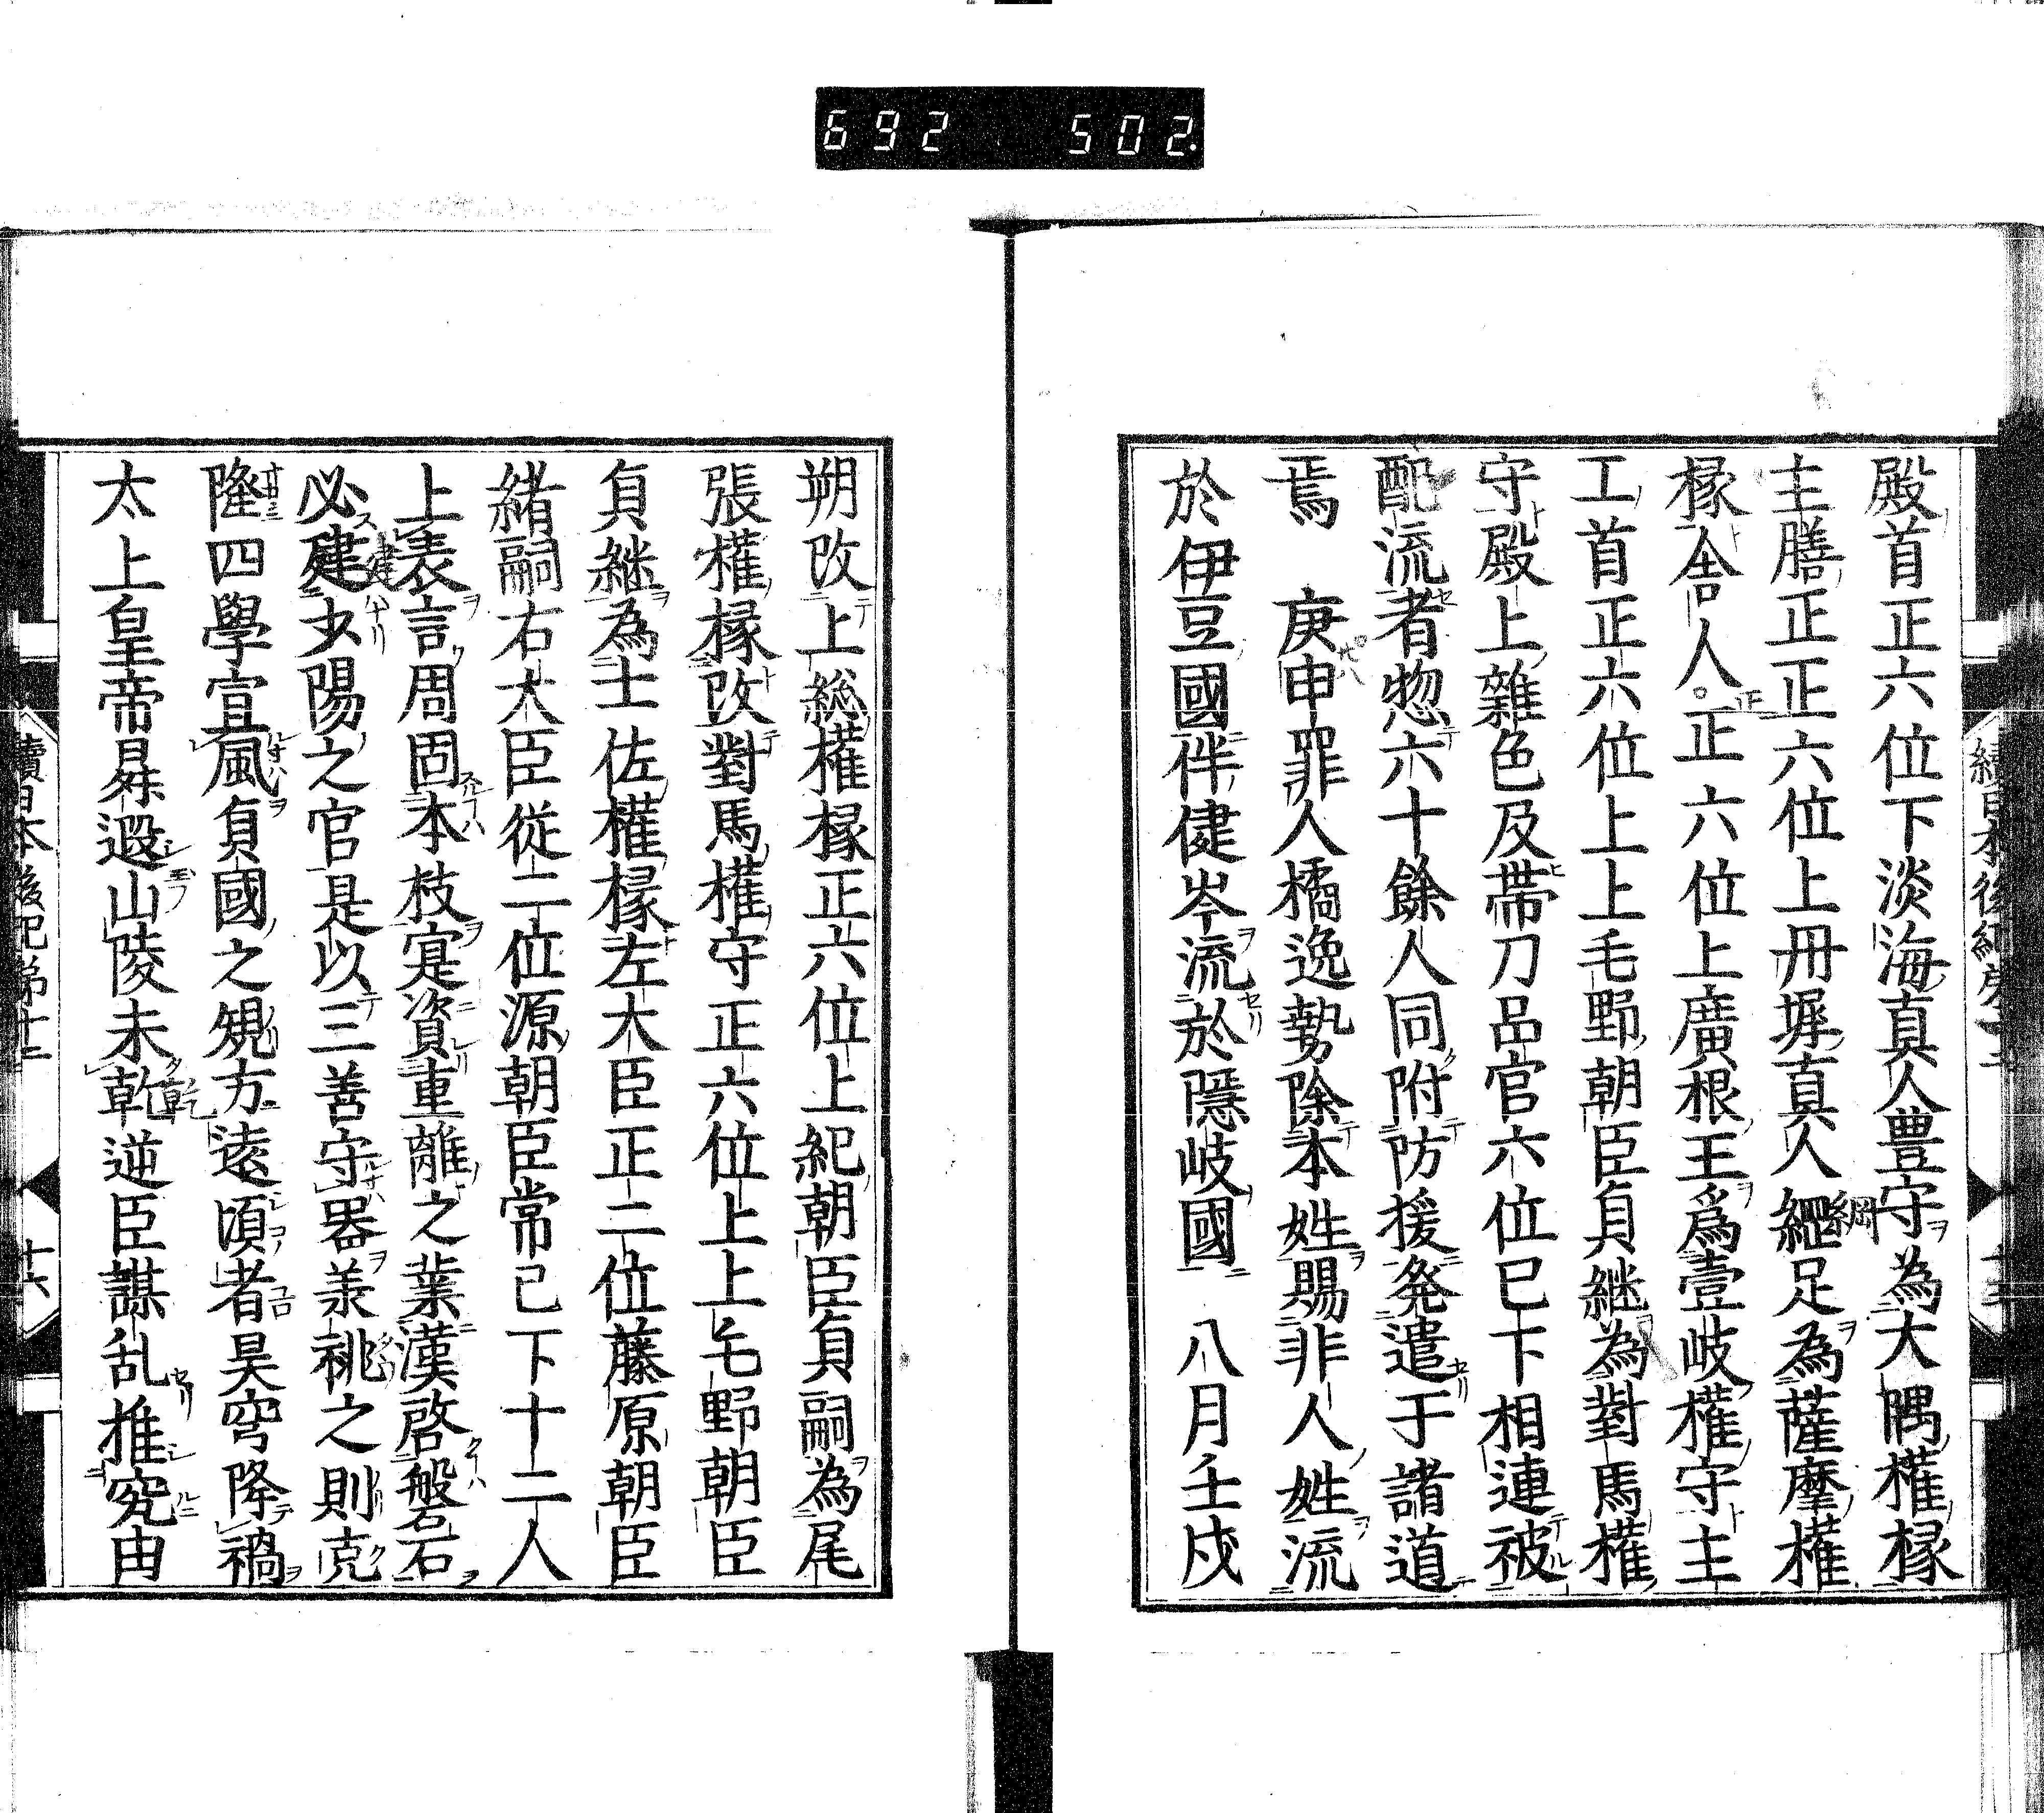 692 502.
殿首正六位下淡海真人豊守為大隅權掾
主膳正正六位上丹墀真人繩足為薩摩權
掾舎人正六位上廣根王爲壹岐權守主
工首正六位上上毛野朝臣貞継為對馬權
守殿上雜色及帶刀品官六位已下相連被
配流者惣六十餘人同附防援発遣于諸道
焉 庚申罪人橘逸勢除本姓賜非人姓流
於伊豆國伴健岑流於隱岐國 八月壬戌
朔改上総權掾正六位上紀朝臣貞嗣為尾
張權掾改對馬權守正六位上上毛野朝臣
貞継為土佐權掾左大臣正二位藤原朝臣
緒嗣右大臣従二位源朝臣常已下十二人
上表言周固本枝寔資重離之業漢啓磐石
必建少陽之官是以三善守器承祧之則克
隆四學宣風貞國之規方遠頃者昊穹降禍
太上皇帝昇遐山陵未乾逆臣謀乱推究由
續日本後紀第十二 十六